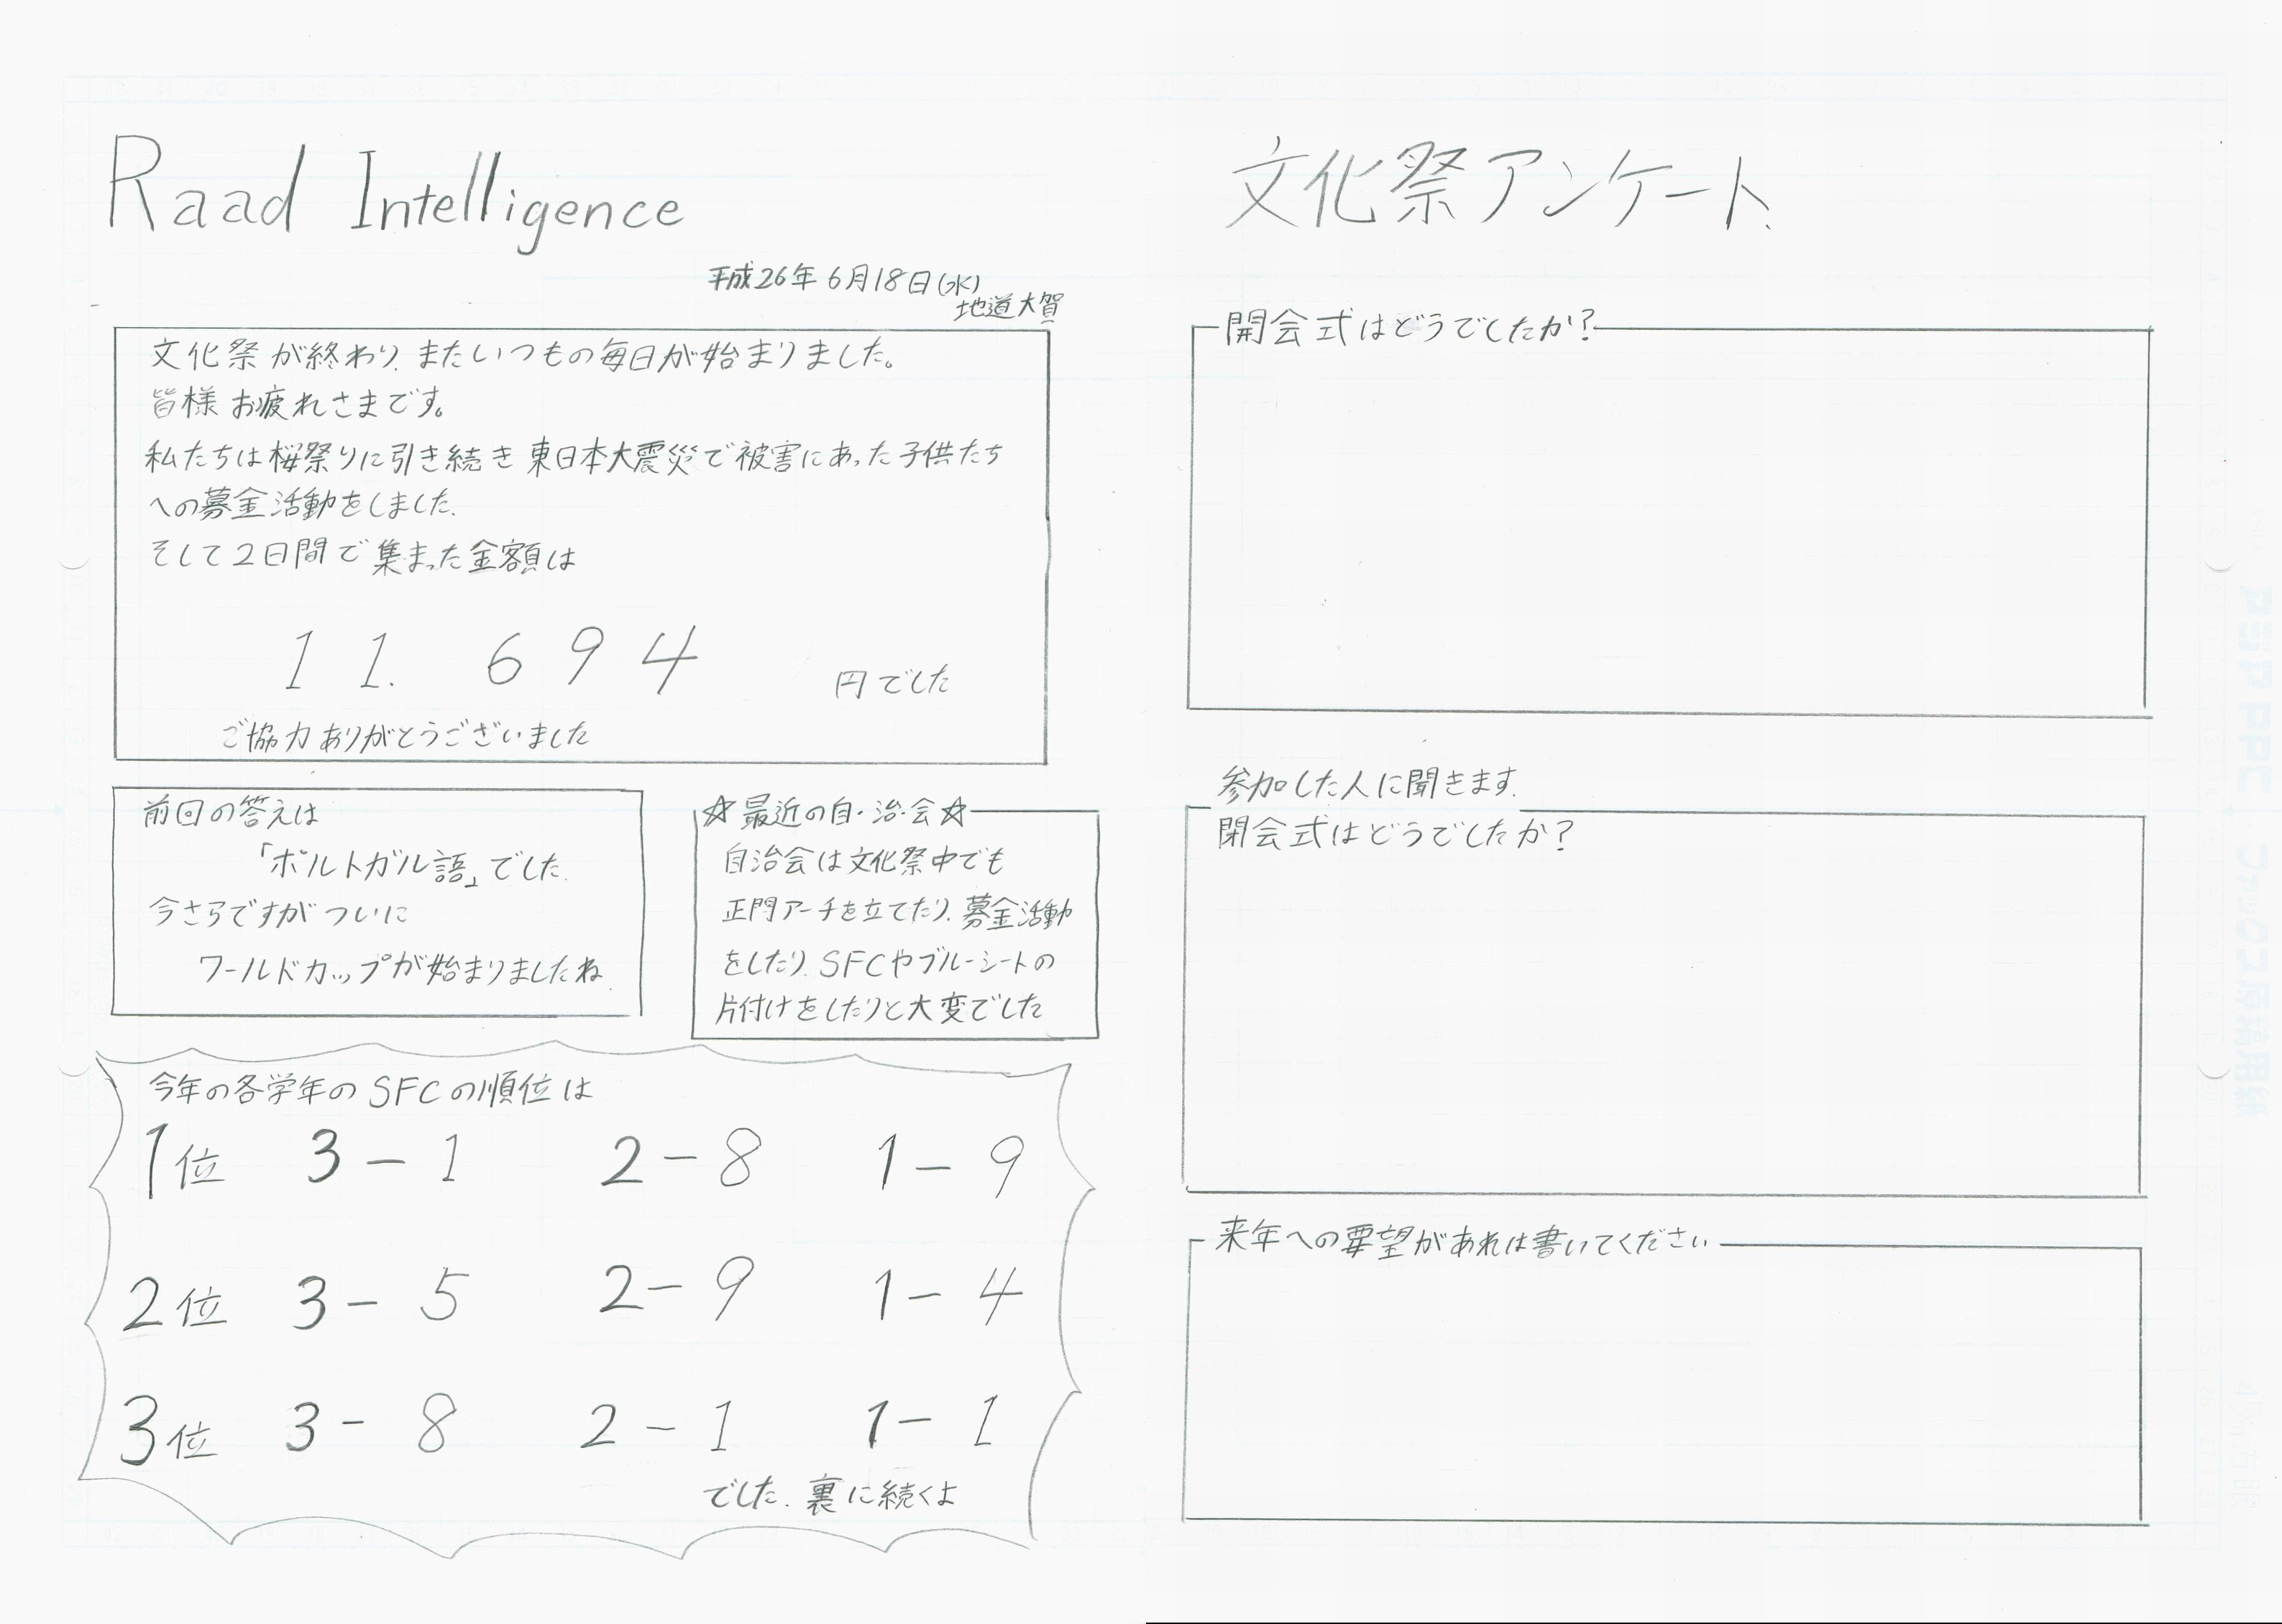 Raad Intelligence
平成26年6月18日(水)
地道大賀
文化祭が終わり、またいつもの毎日が始まりました。
皆様お疲れさまです。
私たちは桜祭りに引き続き東日本大震災で被害にあった子供たち
への募金活動をしました。
そして2日間で集まった金額は
11.694 円でした
ご協力ありがとうございました
前回の答えは
「ポルトガル語」でした。
今さらですがついに
ワールドカップが始まりましたね。
☆最近の自・治・会☆
自治会は文化祭中でも
正門アーチを立てたり、募金活動
をしたり、SFCやブルーシートの
片付けをしたりと大変でした
今年の各学年のSFCの順位は
1位 3-1 2-8 1-9
2位 3-5 2-9 1-4
3位 3-8 2-1 1-1
でした。裏に続くよ
文化祭アンケート
開会式はどうでしたか?
参加した人に聞きます。
閉会式はどうでしたか?
来年への要望があれは書いてください